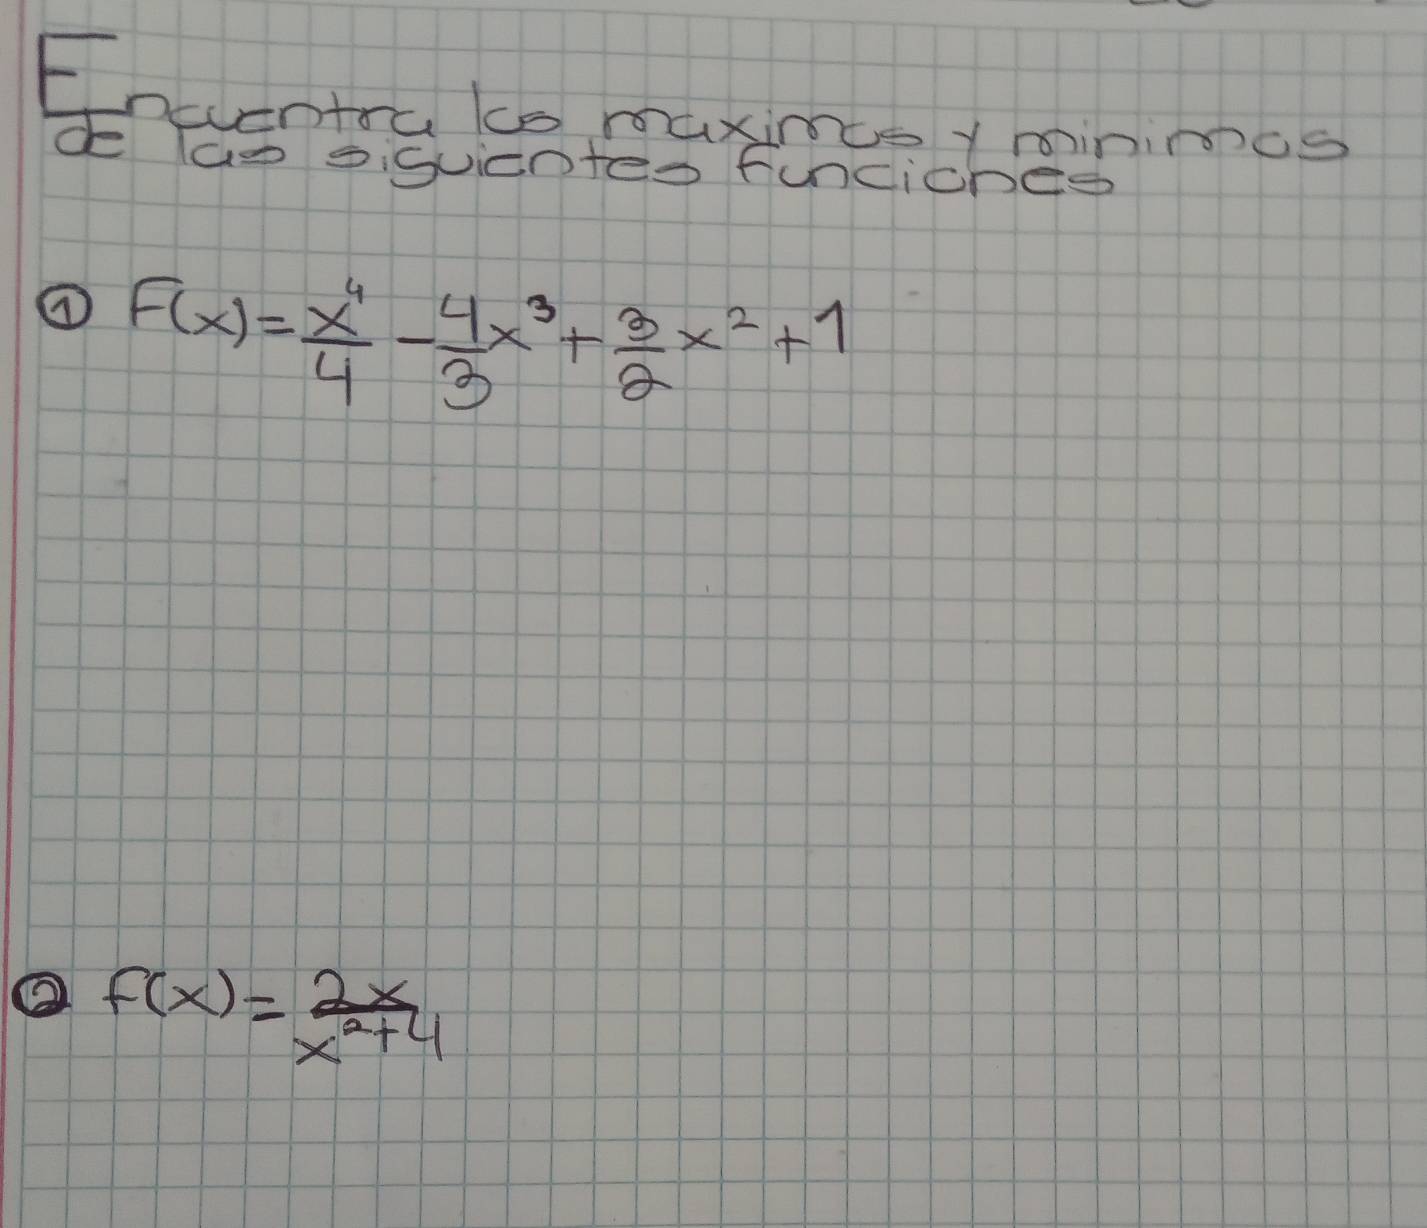 Encuentra los maximos y minimos
de las siguientes funciones
① F(x) = x⁴/4 - 4/3 x³ + 3/2 x² + 1
② f(x) = 2x/x²+4